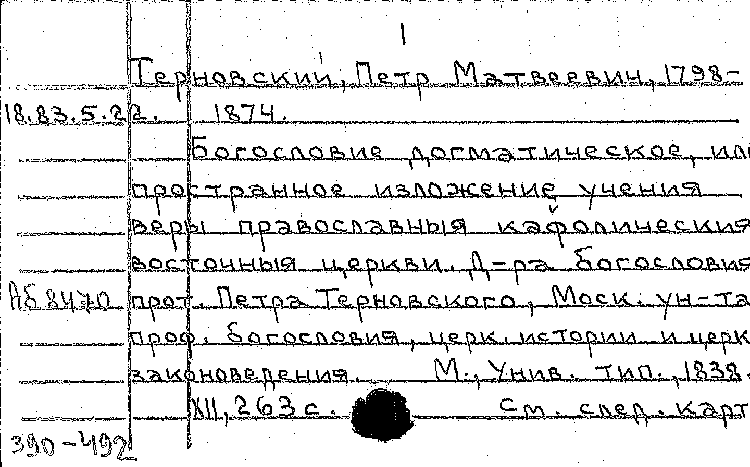 1
Терновский, Петр Матвеевич, 1798-
18.83.5.22. 1874.
Богословие догматическое, или
пространное изложение учения
веры православныя кафолическия
восточныя церкви. Д-ра богословия
АБ 8470 прот. Петра Терновского, Моск. ун-та
проф. богословия, церк. истории и церк
законоведения. М., Унив. тип., 1838.
XII, 263 с. См. след. карт
390-492